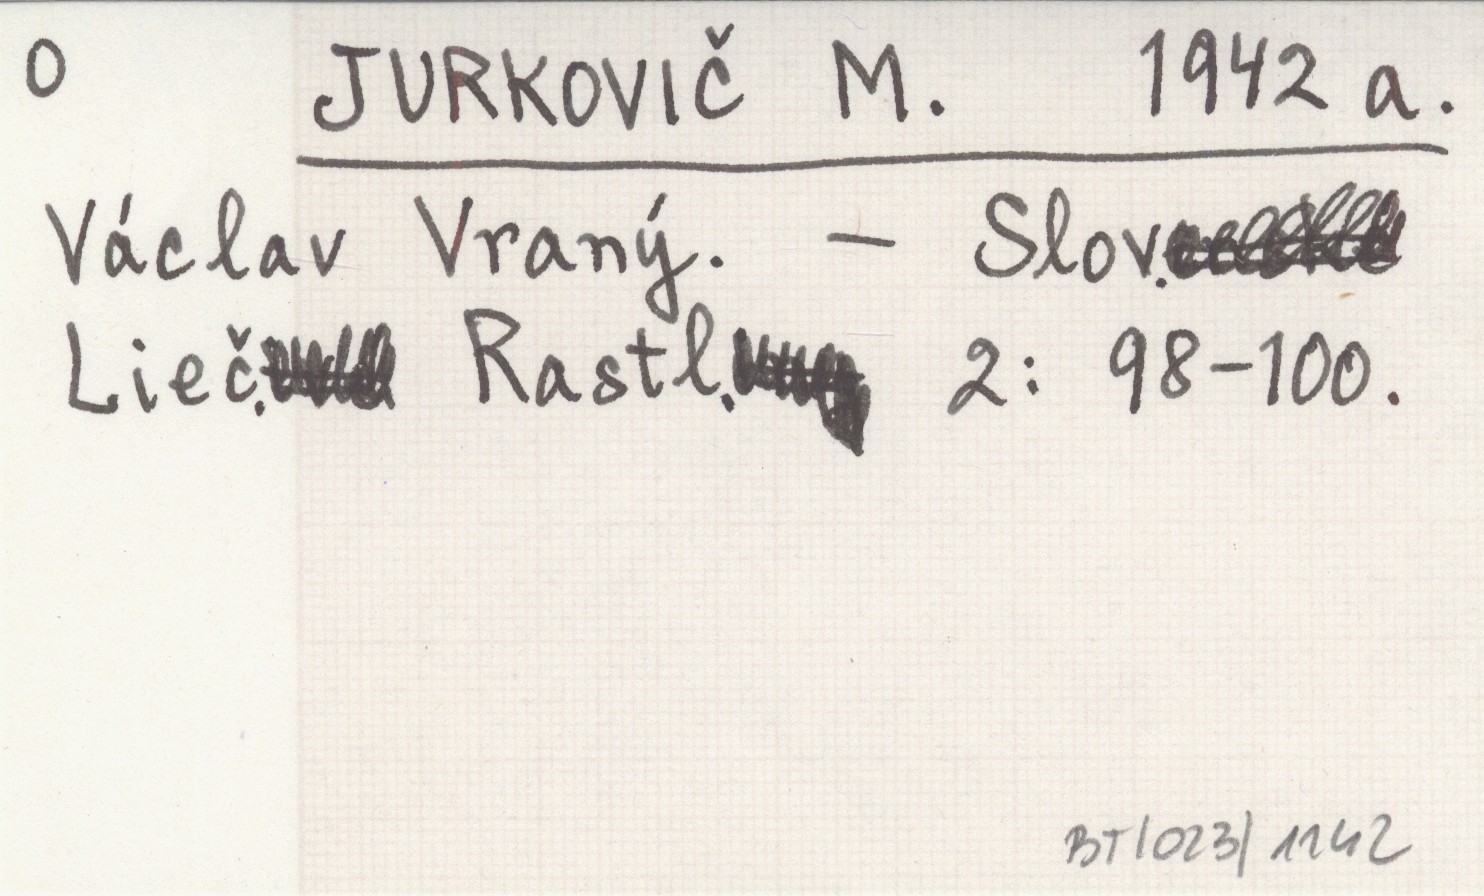 O JURKOVIČ M. 1942 a.
Václav Vraný. – Slov.
Lieč. Rastl. 2: 98-100.
BT/023/1142